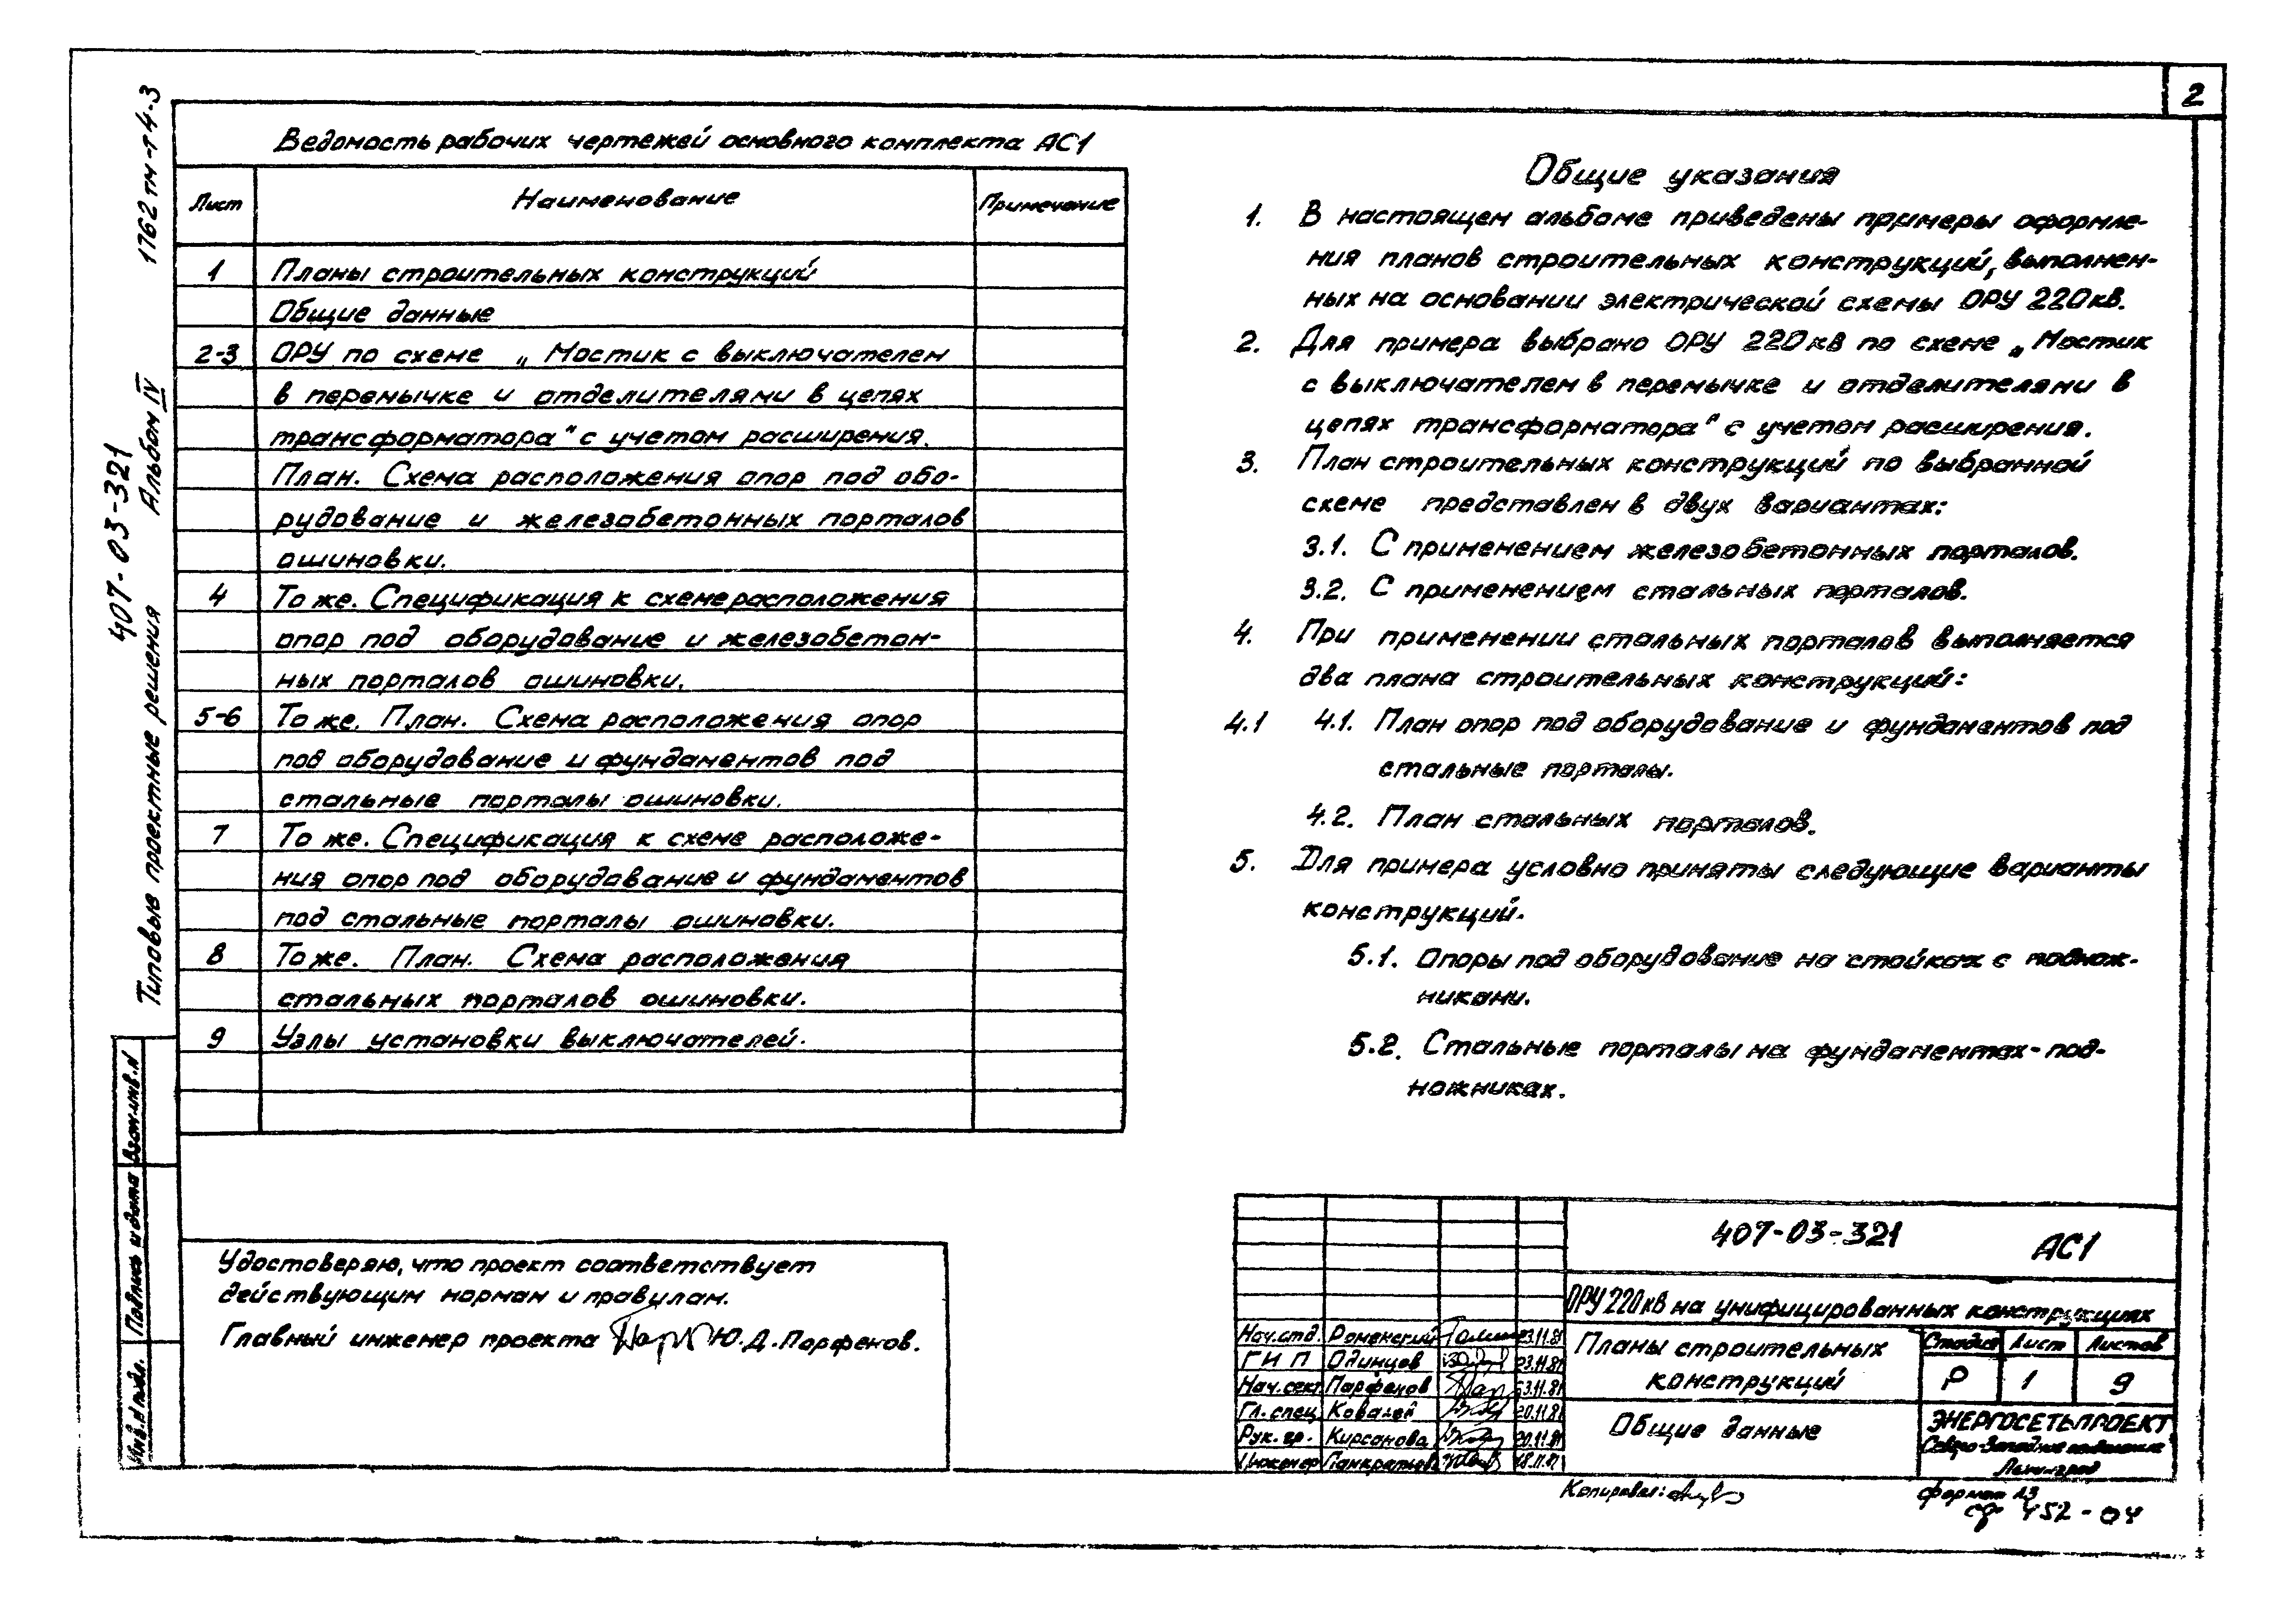 2
1762тм-т4-3
407-03-321
Типовые проектные решения Альбом IV
Ведомость рабочих чертежей основного комплекта АС1
Лист Наименование Примечание
1 Планы строительных конструкций
Общие данные
2-3 ОРУ по схеме „Мостик с выключателем
в перемычке и отделителями в цепях
трансформатора" с учетом расширения.
План. Схема расположения опор под обо-
рудование и железобетонных порталов
ошиновки.
4 То же. Спецификация к схеме расположения
опор под оборудование и железобетон-
ных порталов ошиновки.
5-6 То же. План. Схема расположения опор
под оборудование и фундаментов под
стальные порталы ошиновки.
7 То же. Спецификация к схеме расположе-
ния опор под оборудование и фундаментов
под стальные порталы ошиновки.
8 То же. План. Схема расположения
стальных порталов ошиновки.
9 Узлы установки выключателей.
Общие указания
1. В настоящем альбоме приведены примеры оформле-
ния планов строительных конструкций, выполнен-
ных на основании электрической схемы ОРУ 220кВ.
2. Для примера выбрано ОРУ 220кВ по схеме „Мостик
с выключателем в перемычке и отделителями в
цепях трансформатора" с учетом расширения.
3. План строительных конструкций по выбранной
схеме представлен в двух вариантах:
3.1. С применением железобетонных порталов.
3.2. С применением стальных порталов.
4. При применении стальных порталов выполняется
два плана строительных конструкций:
4.1 4.1. План опор под оборудование и фундаментов под
стальные порталы.
4.2. План стальных порталов.
5. Для примера условно приняты следующие варианты
конструкций.
5.1. Опоры под оборудование на стойках с поднож-
никами.
5.2. Стальные порталы на фундаментах-под-
ножниках.
Удостоверяю, что проект соответствует
действующим нормам и правилам.
Главный инженер проекта Ю.Д.Парфенов.
Взам.инв.N
Подпись и дата
Инв.N подл.
407-03-321 АС1
ОРУ 220кВ на унифицированных конструкциях
Нач.отд. Роменский 23.11.81
ГИП Одинцов 23.11.81
Нач.сект. Парфенов 23.11.81
Гл.спец. Ковалев 20.11.81
Рук.гр. Кирсанова 20.11.81
Инженер 18.11.81
Планы строительных
конструкций
Стадия Лист Листов
Р 1 9
Общие данные
ЭНЕРГОСЕТЬПРОЕКТ
Северо-Западное отделение
Ленинград
Копировал:
формат А3
сф 452-04